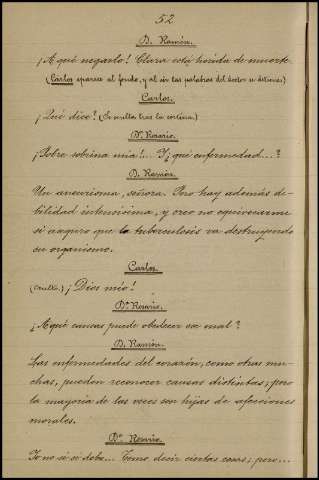 52
D. Ramón.
¡A qué negarlo! Clara está herida de muerte.
(Carlos aparece al fondo, y al oir las palabras del doctor se detiene)
Carlos.
¡Qué dice! (Se oculta tras la cortina)
Dª Rosario.
¡Pobre sobrina mia!... Y ¿qué enfermedad...?
D. Ramón.
Un aneurisma, señora. Pero hay además de-
bilidad intensísima, y creo no equivocarme
si aseguro que la tuberculosis va destruyendo
su organismo.
Carlos.
(oculto) ¡Dios mío!
Dª Rosario.
¿A qué causas puede obedecer ese mal?
D. Ramón.
Las enfermedades del corazón, como otras mu-
chas, pueden reconocer causas distintas; pero
la mayoría de las veces son hijas de afecciones
morales.
Dª Rosario.
Yo no sé si debo... Temo decir ciertas cosas; pero...